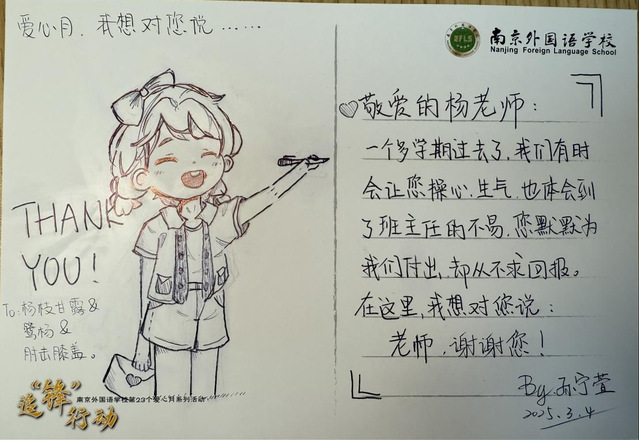 爱心月，我想对您说……
THANK
YOU!
To:杨枝甘露&
鹭杨&
肘击膝盖。
“锋”
追 行动
南京外国语学校第23个爱心月系列活动
NFLS
南京外国语学校
Nanjing Foreign Language School
敬爱的杨老师：
一个多学期过去了，我们有时
会让您操心、生气，也体会到
了班主任的不易，您默默为
我们付出，却从不求回报。
在这里，我想对您说：
老师，谢谢您！
By.孙宁萱
2025.3.4